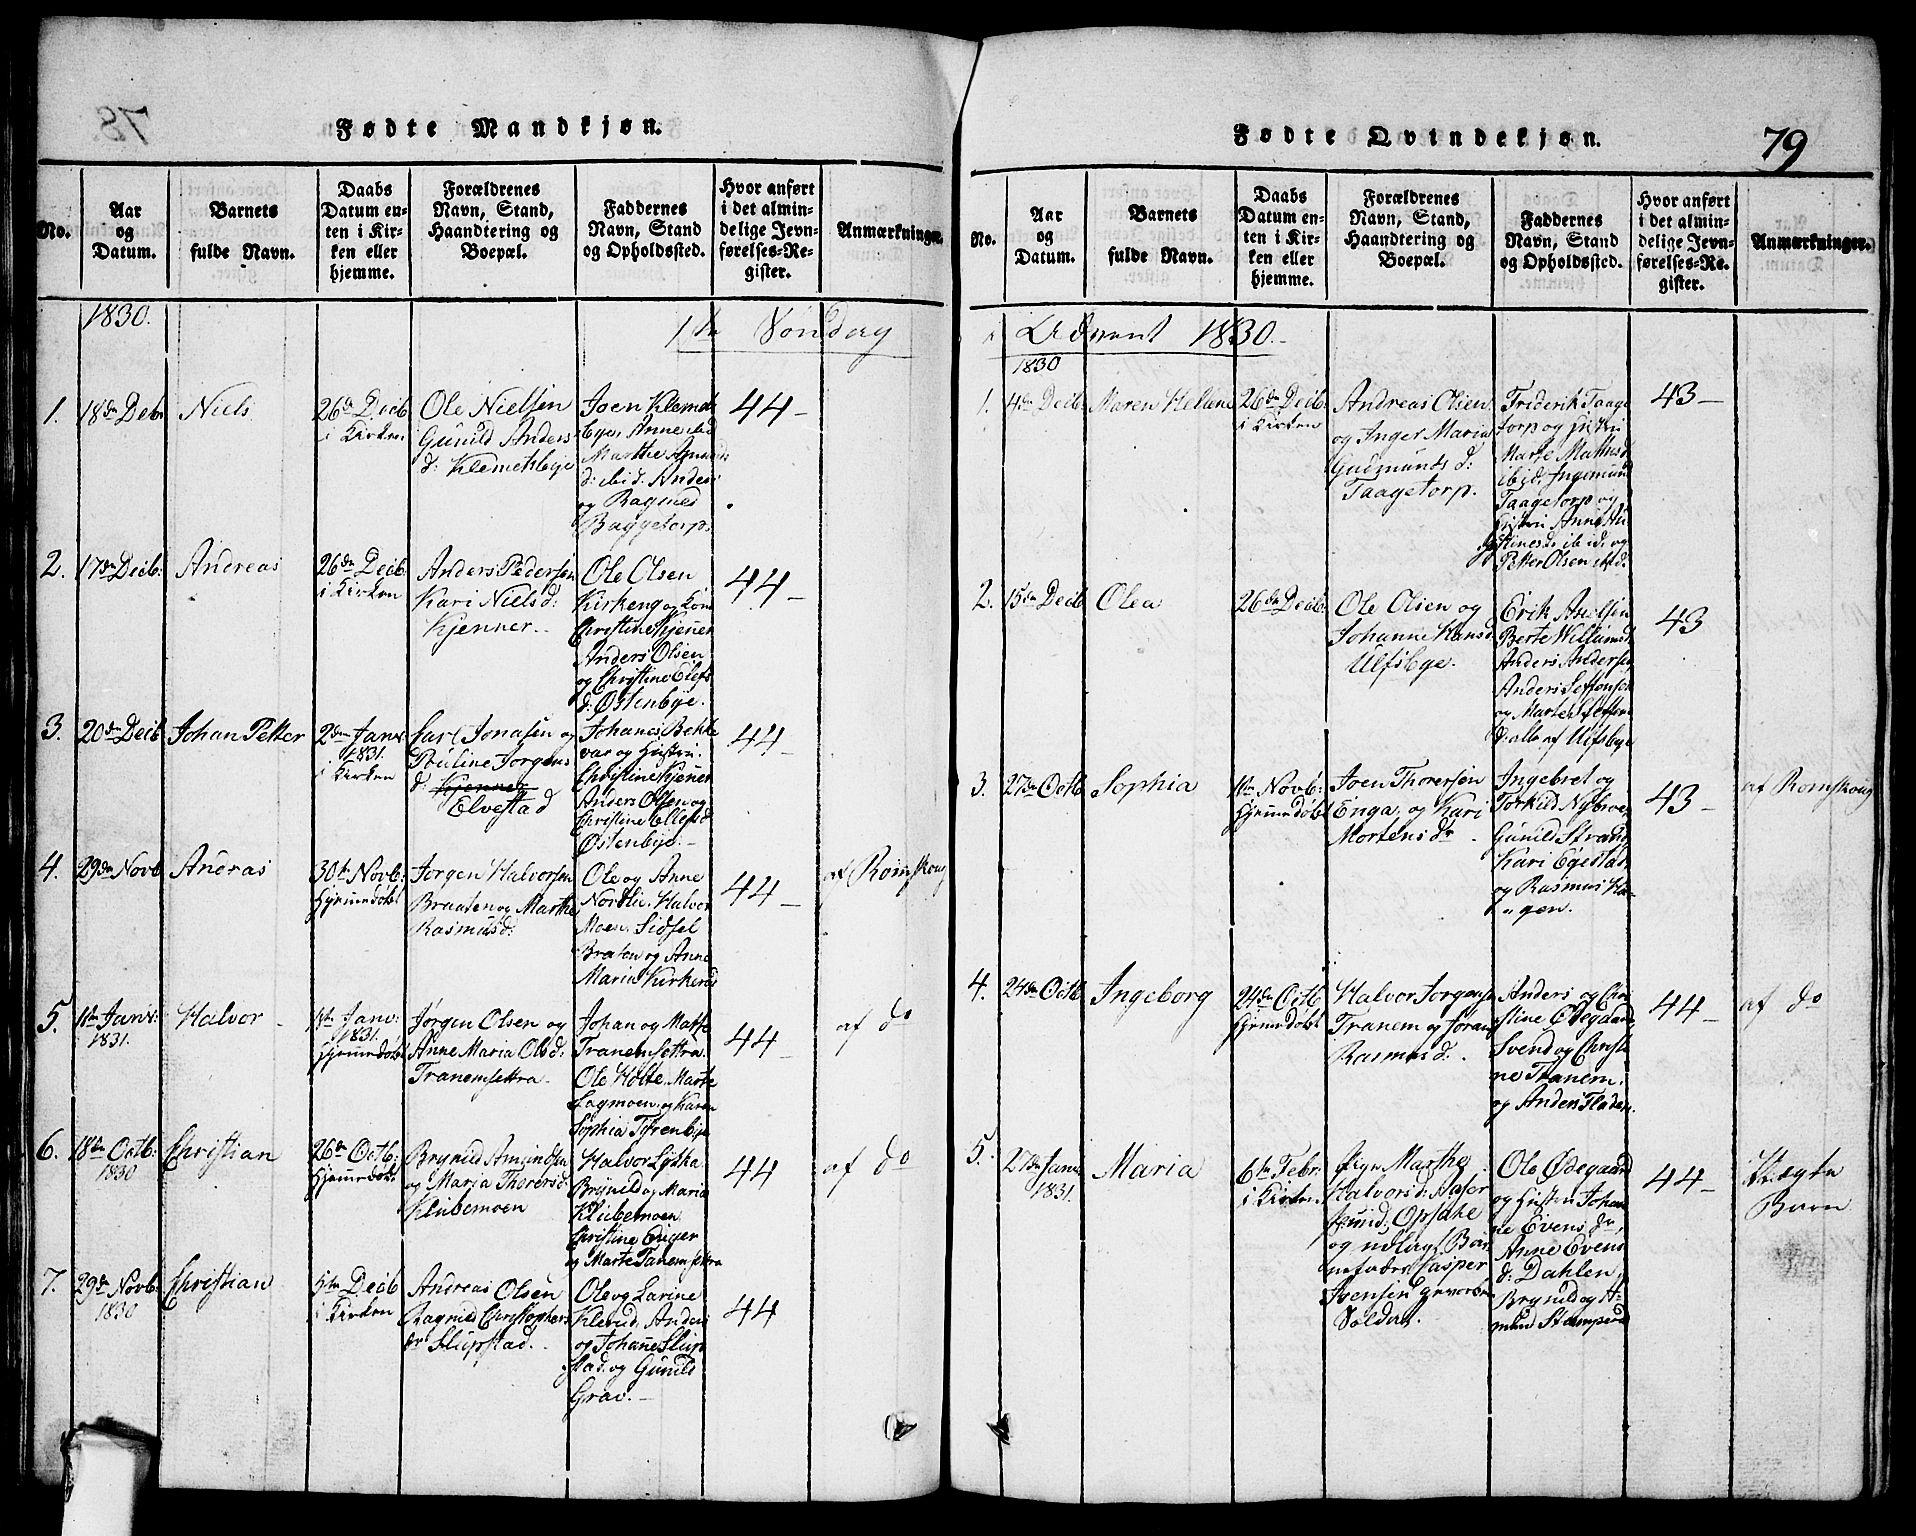 Fødte Mandkjøn.
No.
Aar
og
Datum.
Barnets
fulde Navn.
Daabs
Datum en-
ten i Kir-
ken eller
hjemme.
Forældrenes
Navn, Stand,
Haandtering og
Boepæl.
Faddernes
Navn, Stand
og Opholdssted.
Hvor anført
i det almin-
delige Jevn-
førelses-Re-
gister.
Anmærkninger.
1830.
1ste Søndag
1.
18de Decbr
Niels
26de Decb
i Kirken
Ole Nielsen
Gunild Anders
d: Klemetsbye
Joen Klemets
bye, Anne ibid
Marthe Amunds
d: ibid. Anders
og Ragnild
Baggetorp.
44-
2.
17de Decb:
Andreas
26de Decb.
i Kirken
Anders Pedersen
Kari Niels d:
Kjenner.
Ole Olsen
Kirkeng og Kone
Christine Kjener
Anders Olsen
og Christine Elefs
d: Østenbye.
44-
3.
20de Decb
Johan Petter
2den Janr
1831.
i Kirken
Carl Jonasen og
Pauline Jorgens
d: Kjenner
Elvestad
Johanes Bekke
var og Hustru.
Christine Kjener
Anders Olsen og
Christine Ellefsd
Østenbye.
44-
4.
29de Novb
Andras
30te Novb:
Hjemmedøbt
Jørgen Halvorsen
Braaten og Marthe
Rasmusd:
Ole og Anne
Nordlie. Halvor
Moen. Sidsel
Braten og Anne
Maria Kirkerud
44-
af Romskoug
5.
11te Janr:
1831.
Halvor
Janr:
1831.
Hjemmedøbt
Jørgen Olsen og
Anne Maria Olsd:
Tranemsettra.
Johan og Matte
Tranemsettra.
Ole Holte. Marte
Sagmoen. og Karen
Sophia Tyrenbye
44-
af do
6.
18de Octb:
1830
Christian
26de Octb:
Hjemmedøbt
Brynild Amundsen
og Maria Thorersd:
Klubemoen
Halvor Lytka
Brynild og Maria
Klubemoen
Christine Eriger
og Marte Tanemsettra
44
af do
7.
29de Novb:
1830
Christian
5te Decb
i Kirken
Andreas Olsen
Ragnild Christophers
dr Slupstad.
Ole og Larine
Klerud. Anders
og Johane Slup
stad. og Gunild
Grav.
44
Fødte Qvindekjøn.
79
No.
Aar
og
Datum.
Barnets
fulde Navn.
Daabs
Datum en-
ten i Kir-
ken eller
hjemme.
Forældrenes
Navn, Stand,
Haandtering og
Boepæl.
Faddernes
Navn, Stand
og Opholdssted.
Hvor anført
i det almin-
delige Jevn-
førelses-Re-
gister.
Anmærkninger.
i Advent 1830.
1830
1.
4de Decb
Maren Helene
26de Decb:
i Kirken
Andreas Olsen
og Inger Maria
Gudmunds d:
Taagetorp.
Friderik Taage
torp og
Marte Mathisd
ibid. Ingemund
Taagetorp og
Hustru Anne
ibid. og
Petter Olsen ibid.
43-
2.
15de Decb
Olea
26de Decb.
Ole Olsen og
Johanne Hansd.
Ulfsbye.
Erik Axelsen
Berte Willumsd.
Anders Andersen,
Anders Steffensen
og Marte Steffens
d: alle af Ulfsbye
43
3.
27de Octb
Sophia
1ste Novb:
Hjemmedøbt
Joen Thorersen
Enga, og Kari
Mortens dr
Ingebret og
Torkild Nybroe,
Gunild Strand,
Kari Egestad,
og Rasmus Ha-
gen.
43-
af Romskoug
4.
24de Octb
Ingeborg
24de Octb
hjemmedøbt
Halvor Jorgense
Tranem og Joran
Rasmus d:
Anders og Chri
stine Ødegaard,
Svend og Christi
ne Tranem.
og Anders Fladen.
44-
af do
5.
27de Janr
1831.
Maria
6te Febr:
i Kirken
Pige Marthe
Halvorsd: Aaser
Opsahe
og udlagt Bar-
nefader Casper
Svensen gevorbn
Soldat.
Ole Ødegaard
og Hustru Johan
ne Evens dr,
Anne Evens
d: Dahlen,
Brynild og A-
mund Stomperud
44-
Uægte
Barn